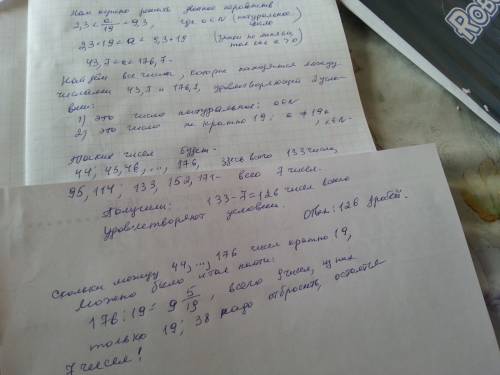 Нам нужно решить двойное неравенство
2,3 < a/19 < 9,3, где a∈N (натуральное число)
2,3·19 < a < 9,3·19 (знаки не меняем, так как 19 > 0)
43,7 < a < 176,7.
Найдём все числа, которые находятся между
числами 43,7 и 176,7, удовлетворяющей 2 усло-
виям:
1) это число натуральное: a∈N
2) это число не кратно 19: a ≠ 19n, n∈N.
Таких чисел будет
44, 45, 46, ..., 176, здесь всего 133 числа,
95, 114; 133, 152, 171 - всего 7 чисел.
Получим: 133-7=126 чисел всего
удовлетворяют условии.
Ответ: 126 дробей.
Сколько между 44, ..., 176 чисел кратно 19,
можно было и так найти:
176:19 = 9 5/19, всего 9 чисел, из них
только 19; 38 надо отбросить, остаётся
7 чисел!
Rob